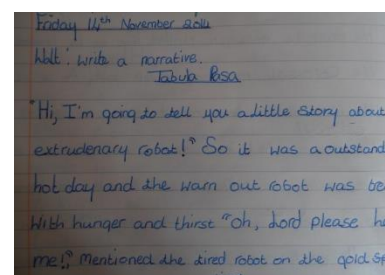 Friday 14th November 2014
Walt: write a narrative.
Tabula Rasa
"Hi, I'm going to tell you a little story about
extrudenary robot!" So it was a outstand
hot day and the warn out robot was be
with hunger and thirst "oh, Lord please he
me!" Mentioned the tired robot on the gold s